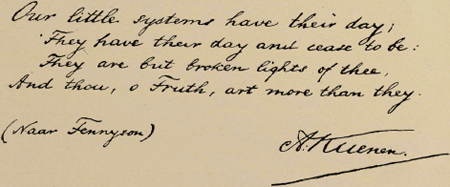 Our little systems have their day;
They have their day and cease to be:
They are but broken lights of thee,
And thou, o Truth, art more than they.
(Naar Tennyson)
A. Kuenen.